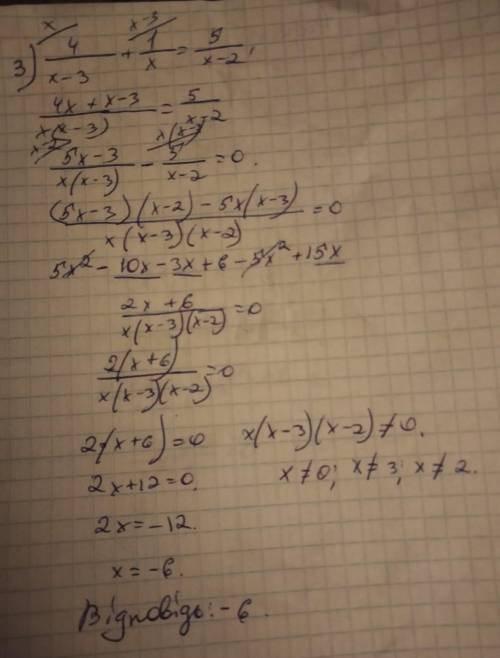 3) 4/(x-3) (x) + 1/x (x-3) = 5/(x-2),
(4x + x-3)/(x(x-3)) = 5/(x-2)
(5x-3)/(x(x-3)) (x-2) - 5/(x-2) (x(x-3)) = 0.
((5x-3)(x-2) - 5x(x-3))/(x(x-3)(x-2)) = 0
5x² - 10x - 3x + 6 - 5x² + 15x
(2x + 6)/(x(x-3)(x-2)) = 0
2(x+6)/(x(x-3)(x-2)) = 0
2(x+6) = 0 x(x-3)(x-2) ≠ 0.
2x+12 = 0. x ≠ 0; x ≠ 3; x ≠ 2.
2x = -12.
x = -6.
Відповідь: -6.